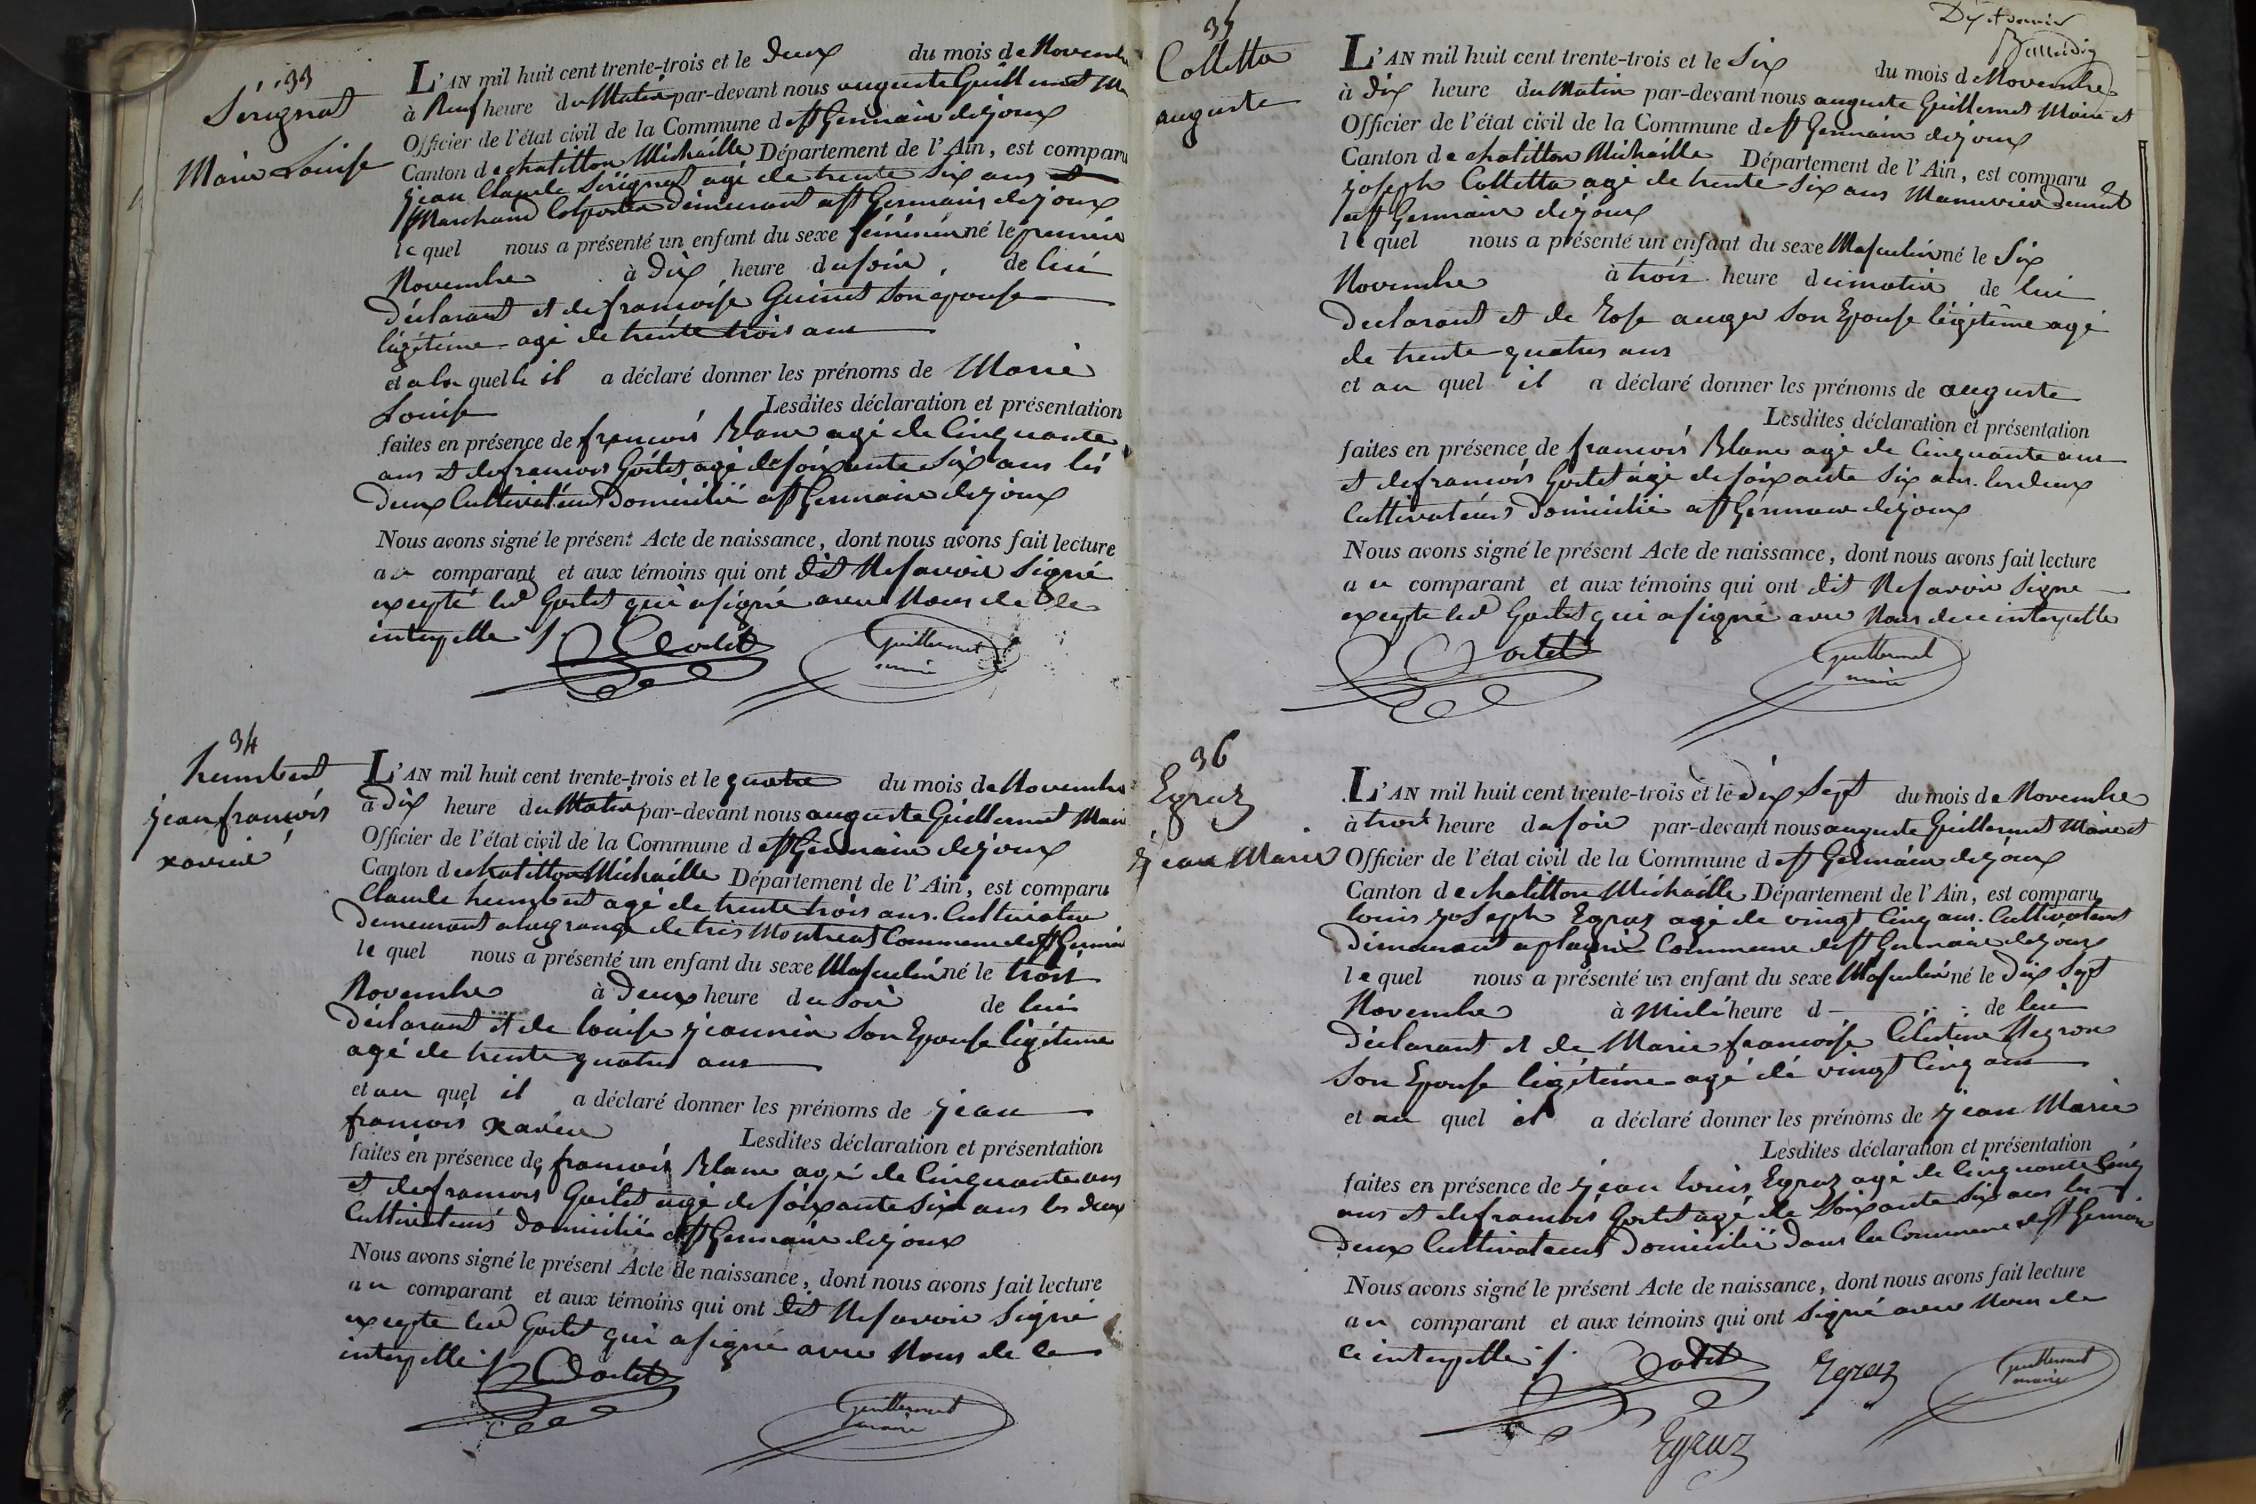 33
Sérignat
Marie Louise
L'AN mil huit cent trente-trois et le deux du mois de Novembre
à Neuf heure du Matin par-devant nous auguste Guillermet
Officier de l'état civil de la Commune de St Germain dejoux
Canton de chatillon Michaille Département de l'Ain, est comparu
jean Claude Sérignat agé de trente Six ans
Marchand Colporteur demeurant a St Germain dejoux
le quel nous a présenté un enfant du sexe féminin né le premier
Novembre à Dix heure du soir, de lui
déclarant et de francoise Guinet son epouse
légitime agé de trente trois ans
et a la quelle il a déclaré donner les prénoms de Marie
Louise Lesdites déclaration et présentation
faites en présence de francois Blanc agé de Cinquante
ans et de francois Goitet agé de soixante Six ans les
deux Cultivateurs Domicilié a St Germain dejoux
Nous avons signé le présent Acte de naissance, dont nous avons fait lecture
au comparant et aux témoins qui ont dit Ne savoir Signé
excepté led Goitet qui a signé avec Nous de Ce
interpellé
Guillermet
maire
34
humbert
jean francois
xavier
L'AN mil huit cent trente-trois et le quatre du mois de Novembre
à Dix heure du Matin par-devant nous auguste Guillermet Maire
Officier de l'état civil de la Commune de St Germain dejoux
Canton de chatillon Michaille Département de l'Ain, est comparu
Claude humbert agé de trente trois ans. Cultivateur
Demeurant a la grange de tres Montreal Commune de St Germain
le quel nous a présenté un enfant du sexe Masculin né le trois
Novembre à Deux heure du Soir de lui
déclarant et de louise jeannin Son Epouse légitime
agé de trente quatre ans
et au quel il a déclaré donner les prénoms de jean
francois xavier Lesdites déclaration et présentation
faites en présence de francois Blanc agé de Cinquante ans
et de francois Goitet agé de soixante Six ans les deux
Cultivateurs domicilié a St Germain dejoux
Nous avons signé le présent Acte de naissance, dont nous avons fait lecture
au comparant et aux témoins qui ont dit Ne savoir Signé
excepté led Goitet qui a signé avec Nous de Ce
interpellé
Guillermet
maire
35
Colletta
auguste
L'AN mil huit cent trente-trois et le Six du mois de Novembre
à dix heure du Matin par-devant nous auguste Guillermet Maire et
Officier de l'état civil de la Commune de St Germain dejoux
Canton de chatillon Michaille Département de l'Ain, est comparu
joseph Colletta agé de trente-Six ans Manuvrier demeurt
a St Germain dejoux
le quel nous a présenté un enfant du sexe Masculin né le Six
Novembre à trois heure du matin de lui
Declarant et de Rose auger Son Epouse légitime agé
de trente-quatre ans
et au quel il a déclaré donner les prénoms de auguste
Lesdites déclaration et présentation
faites en présence de francois Blanc agé de Cinquante ans
et de francois Goitet agé de soixante Six ans. les deux
Cultivateurs Domicilié a St Germain dejoux
Nous avons signé le présent Acte de naissance, dont nous avons fait lecture
au comparant et aux témoins qui ont dit Ne savoir Signe
excepte led Goitet qui a signé avec Nous de ce interpellé
Guillermet
maire
36
Egraz
jean Marie
L'AN mil huit cent trente-trois et le dix Sept du mois de Novembre
à trois heure du soir par-devant nous auguste Guillermet Maire et
Officier de l'état civil de la Commune de St Germain dejoux
Canton de chatillon Michaille Département de l'Ain, est comparu
louis joseph Egraz agé de vingt Cinq ans. Cultivateur
Demeurant a plagne Commune de St Germain dejoux
le quel nous a présenté un enfant du sexe Masculin né le Dix Sept
Novembre à Midi heure d de lui
déclarant et de Marie francoise Celestine Neyron
Son Epouse légitime agé de vingt Cinq ans
et au quel il a déclaré donner les prénoms de jean Marie
Lesdites déclaration et présentation
faites en présence de jean louis Egraz agé de Cinquante Cinq
ans et de francois Goitet agé de Soixante Six ans les
deux Cultivateurs Domicilié dans la Commune de St Germain
Nous avons signé le présent Acte de naissance, dont nous avons fait lecture
au comparant et aux témoins qui ont Signé avec Nous de
Ce interpellé
Egraz
Guillermet
maire
Egraz